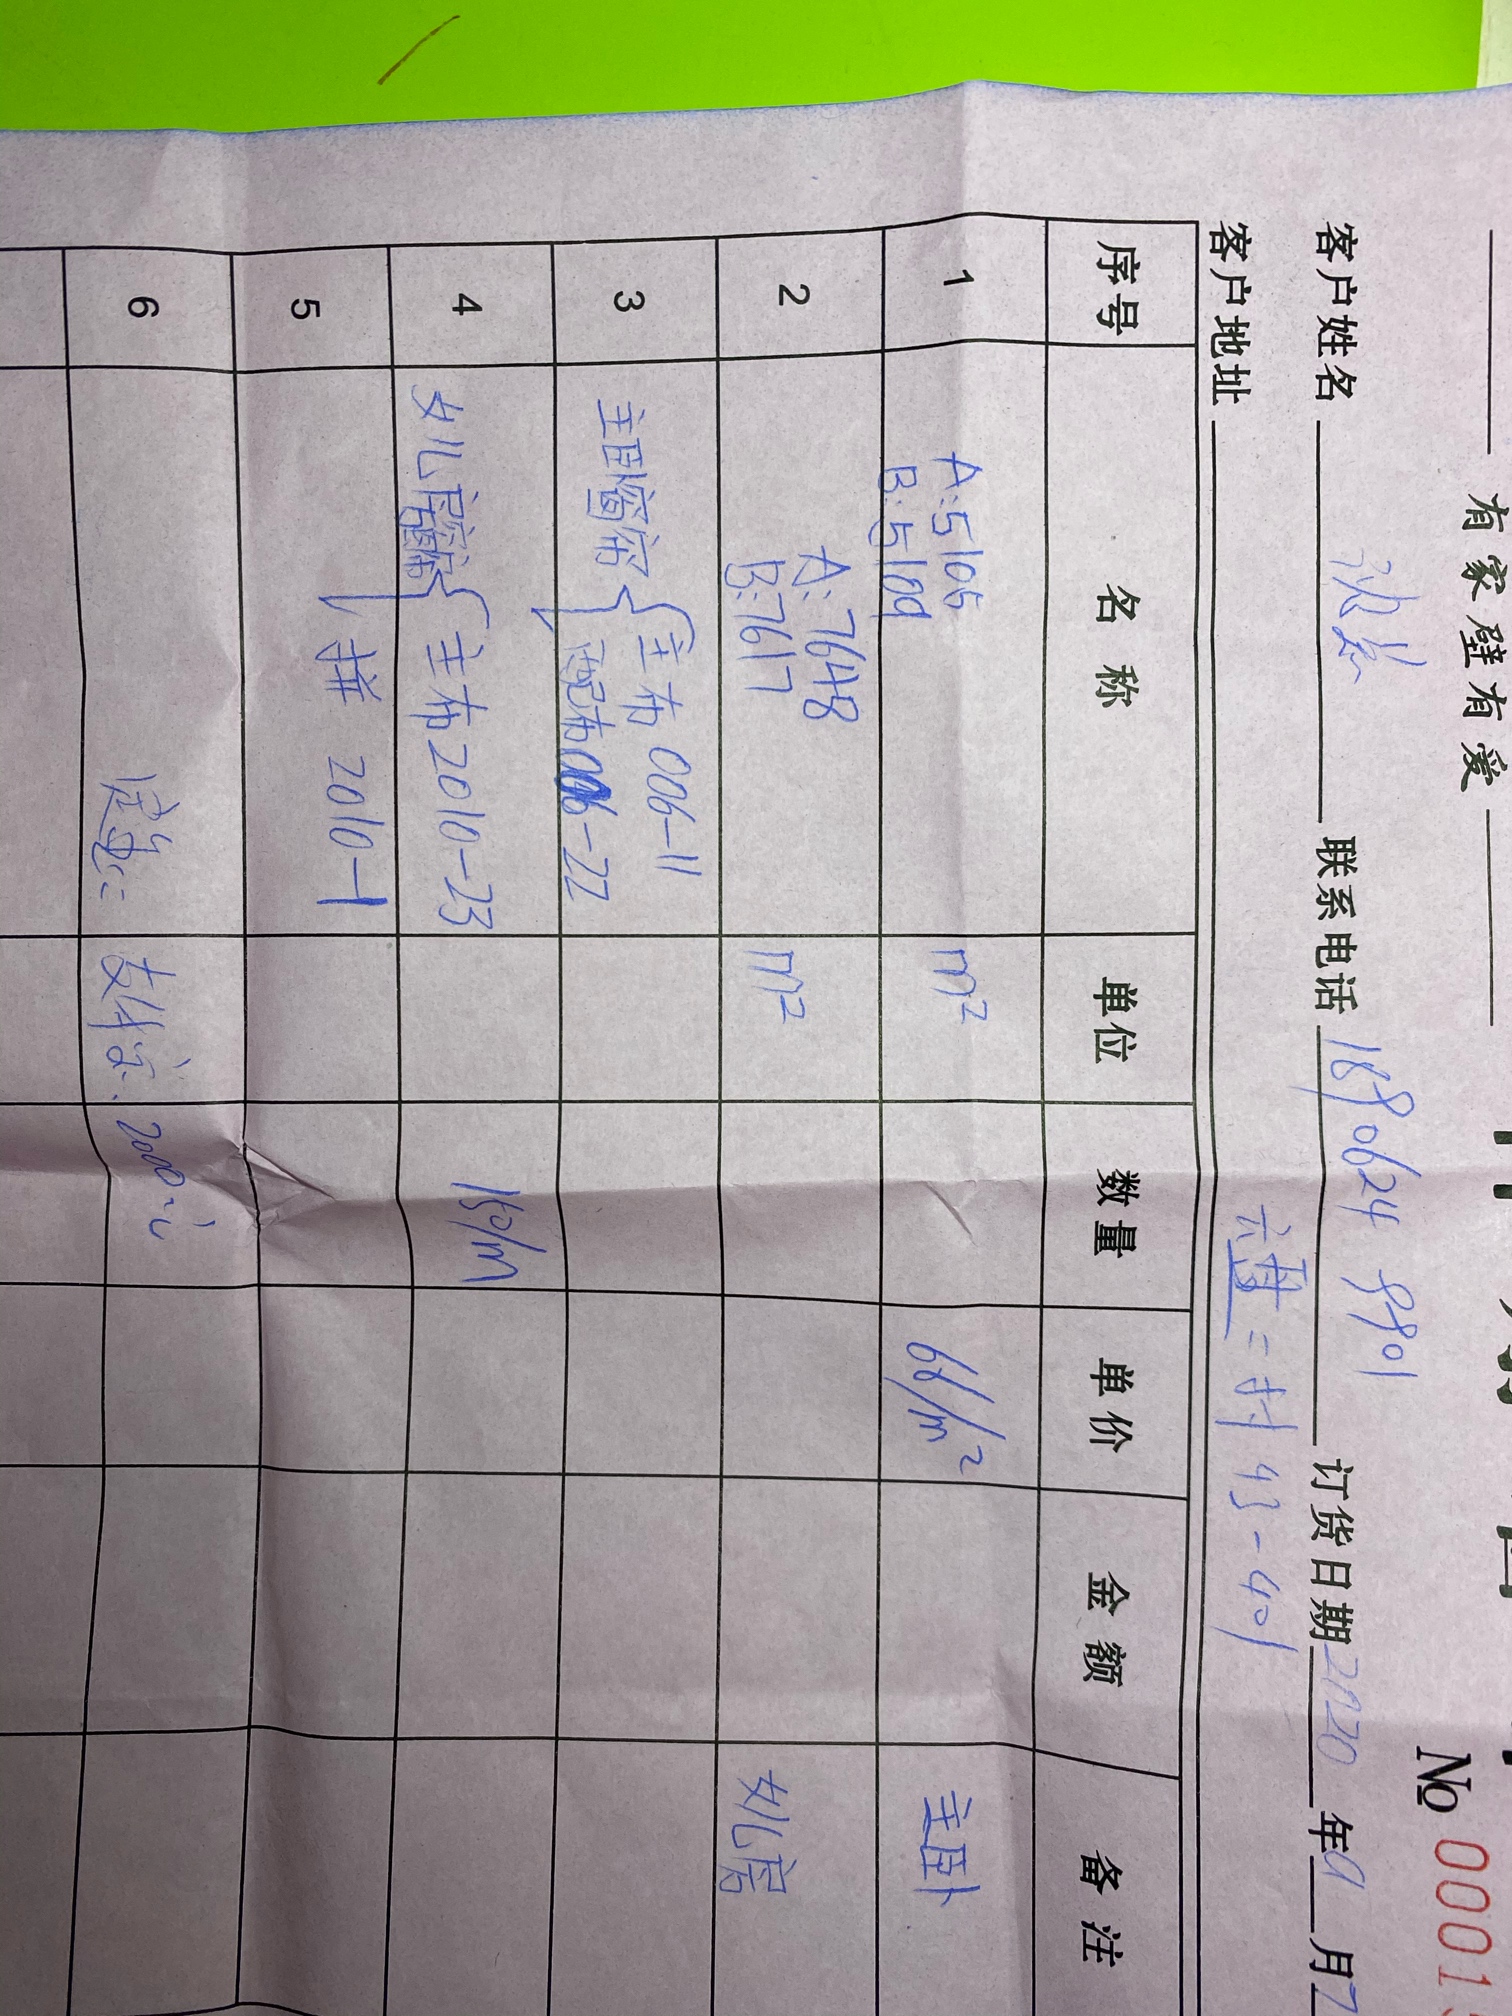 有家壁有爱
№ 0001
客户姓名 联系电话 189 0624 9901 订货日期 2020 年 9 月 7
客户地址 二村 43-401
序号 名称 单位 数量 单价 金额 备注
1 A:5105 B:5109 m² 68/m² 主卧
2 A:7648 B:7617 m² 女儿房
3 主卧窗帘 主布 006-11
配布 006-22
4 女儿房窗帘 主布 2010-23 150/m
5 拼 2010-1
6 2000元